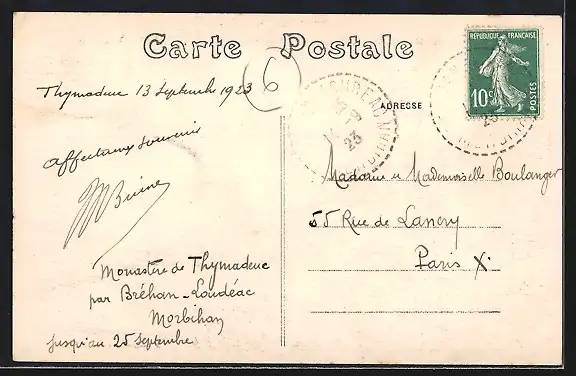 Carte Postale
Thymadeuc 13 Septembre 1923
6
affectueux souvenir
Monastère de Thymadeuc
par Bréhan-Loudéac
Morbihan
jusqu'au 25 Septembre
ADRESSE
REPUBLIQUE FRANÇAISE
10c
POSTES
23
23
Madame et Mademoiselle Boulanger
55 Rue de Lancry
Paris X.